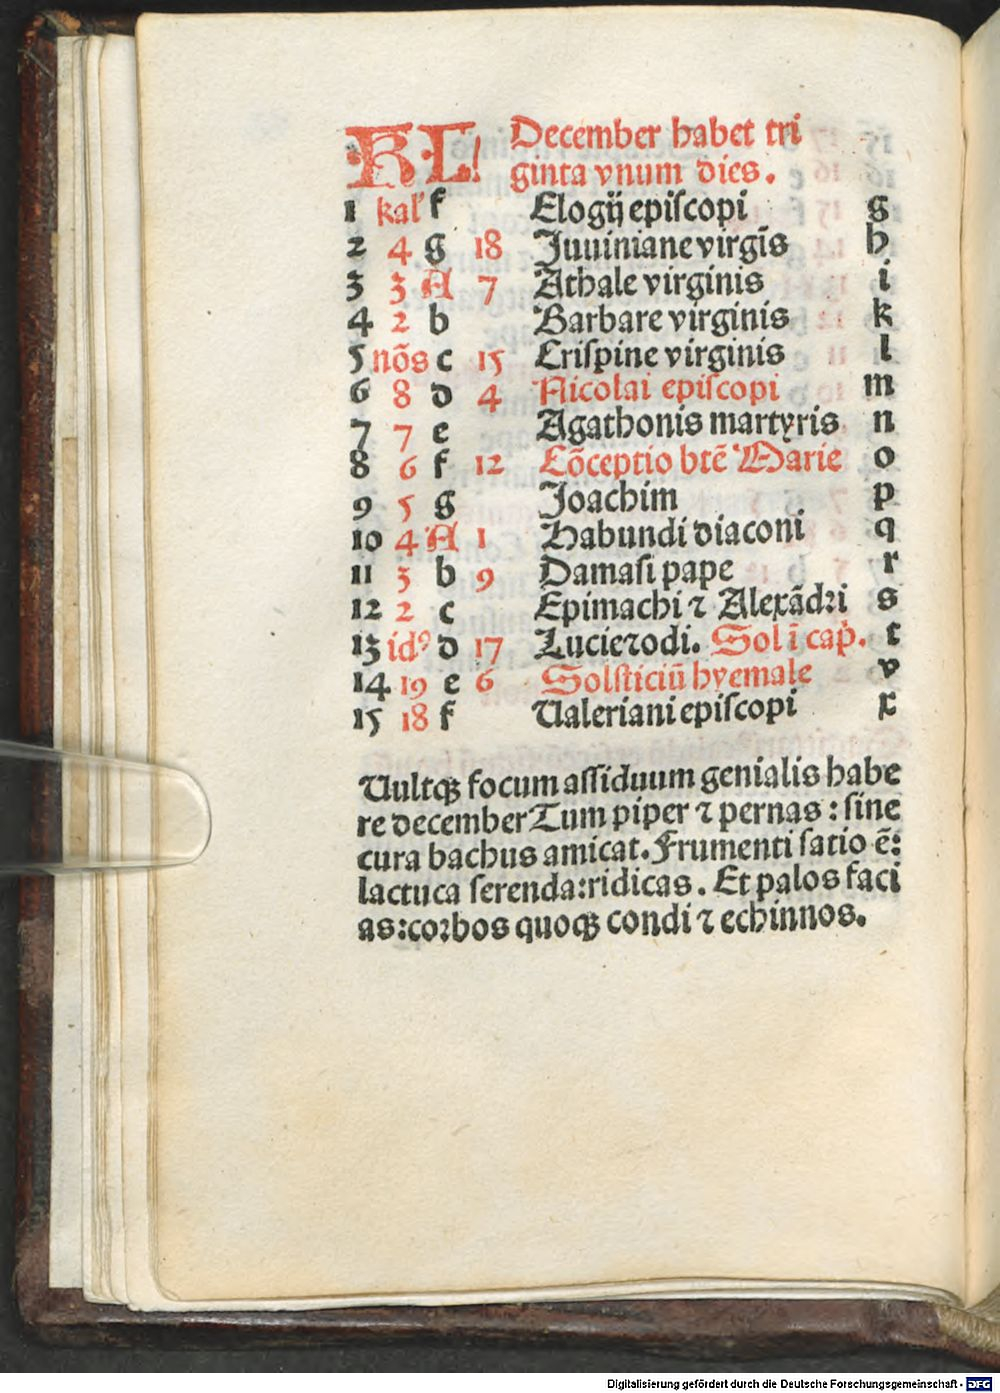 KL December habet tri
ginta vnum dies.
1 kal' f Elogij episcopi g
2 4 g 18 Juuiniane virgīs h
3 3 A 7 Athale virginis i
4 2 b Barbare virginis k
5 nōs c 15 Crispine virginis l
6 8 d 4 Nicolai episcopi m
7 7 e Agathonis martyris n
8 6 f 12 Cōceptio btē Marie o
9 5 g Joachim p
10 4 A 1 Habundi diaconi q
11 3 b 9 Damasi pape r
12 2 c Epimachi ⁊ Alexādꝛi s
13 idꝰ d 17 Lucie⁊odi. Sol ī cap̄. t
14 19 e 6 Solsticiū hyemale v
15 18 f Ualeriani episcopi x
Uultqꝫ focum assiduum genialis habe
re december Tum piper ⁊ pernas : sine
cura bachus amicat. Frumenti satio ē:
lactuca serenda:ridicas. Et palos faci
as:coꝛbos quoqꝫ condi ⁊ echinnos.
Digitalisierung gefördert durch die Deutsche Forschungsgemeinschaft - DFG